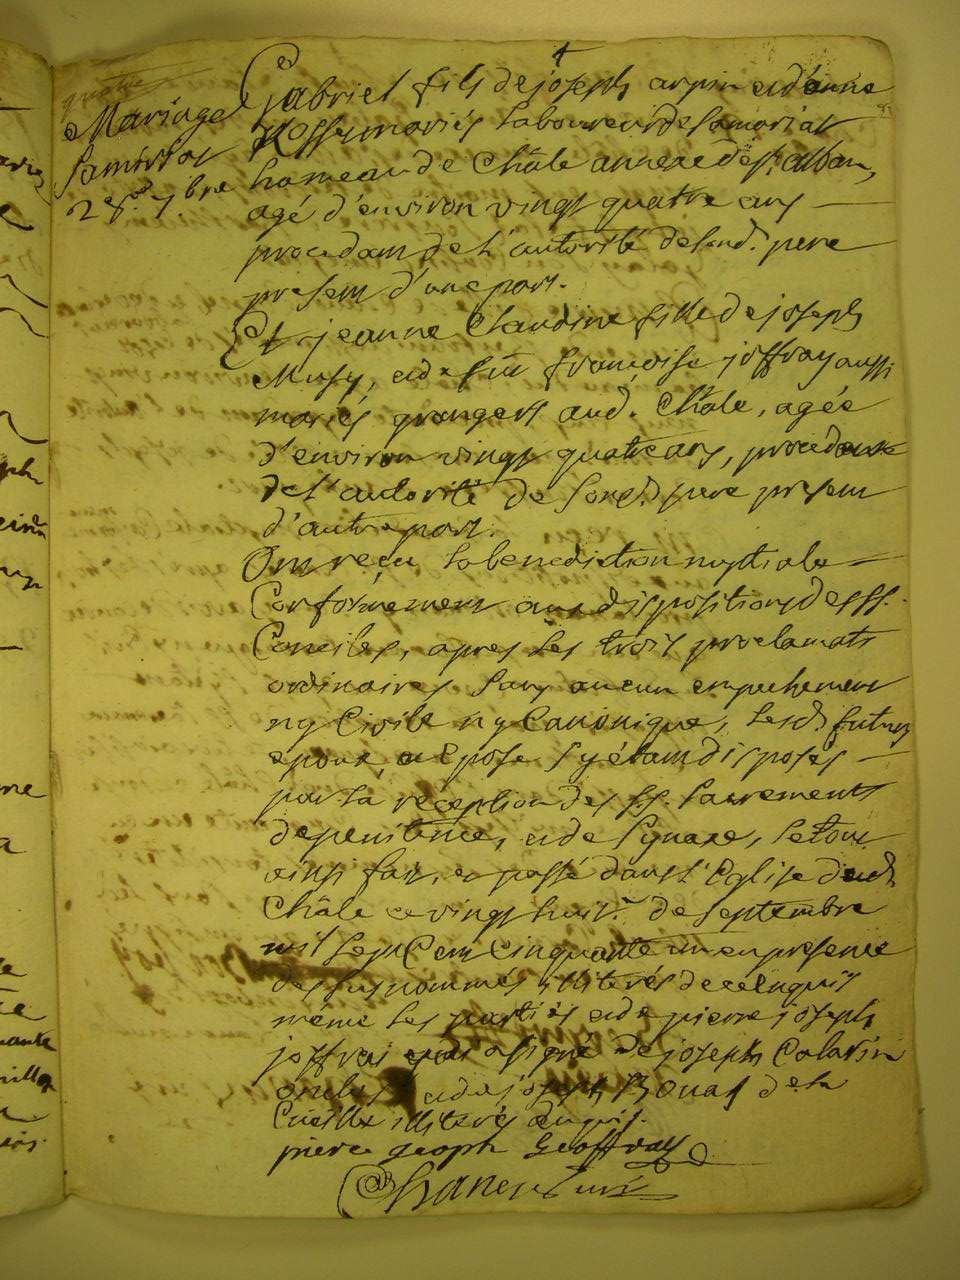 Mariage
Samiriat
28e 7bre
Gabriel fils de joseph arpin et d'anne
mariés laboureur de Samoriat
hameau de Châle annexe de st. alban,
agé d'environ vingt quatre ans
procedant de l'autorité de sond. pere
present d'une part.
Et jeanne Claudine fille de joseph
Musy, et de fû francoise joffray aussi
mariés grangers aud. Châle, agée
d'environ vingt quatre ans, procedante
de l'autorité de sond. pere present
d'autre part.
Ont reçu la benediction nuptiale
Conformement aux dispositions des ss.
Conciles, apres les trois proclamats
ordinaires sans aucun empechement
ny Civile ny Canonique, lesd. futurs
epoux et epose s'y étant disposés
par la réception des ss. sacrements
de penitence, et de synaxe, le tout
ainsi fait, et passé dans l'Eglise dud.
Châle ce vingt huit.e de septembre
mil sept Cent Cinquante un en presence
des susnommés illiterés de ce enquis
même les parties et de pierre joseph
joffrai qui a signé de joseph Calarin
oncles et de joseph Bouas de la
Cueille illiterés enquis.
pierre jeoseph Geoffray